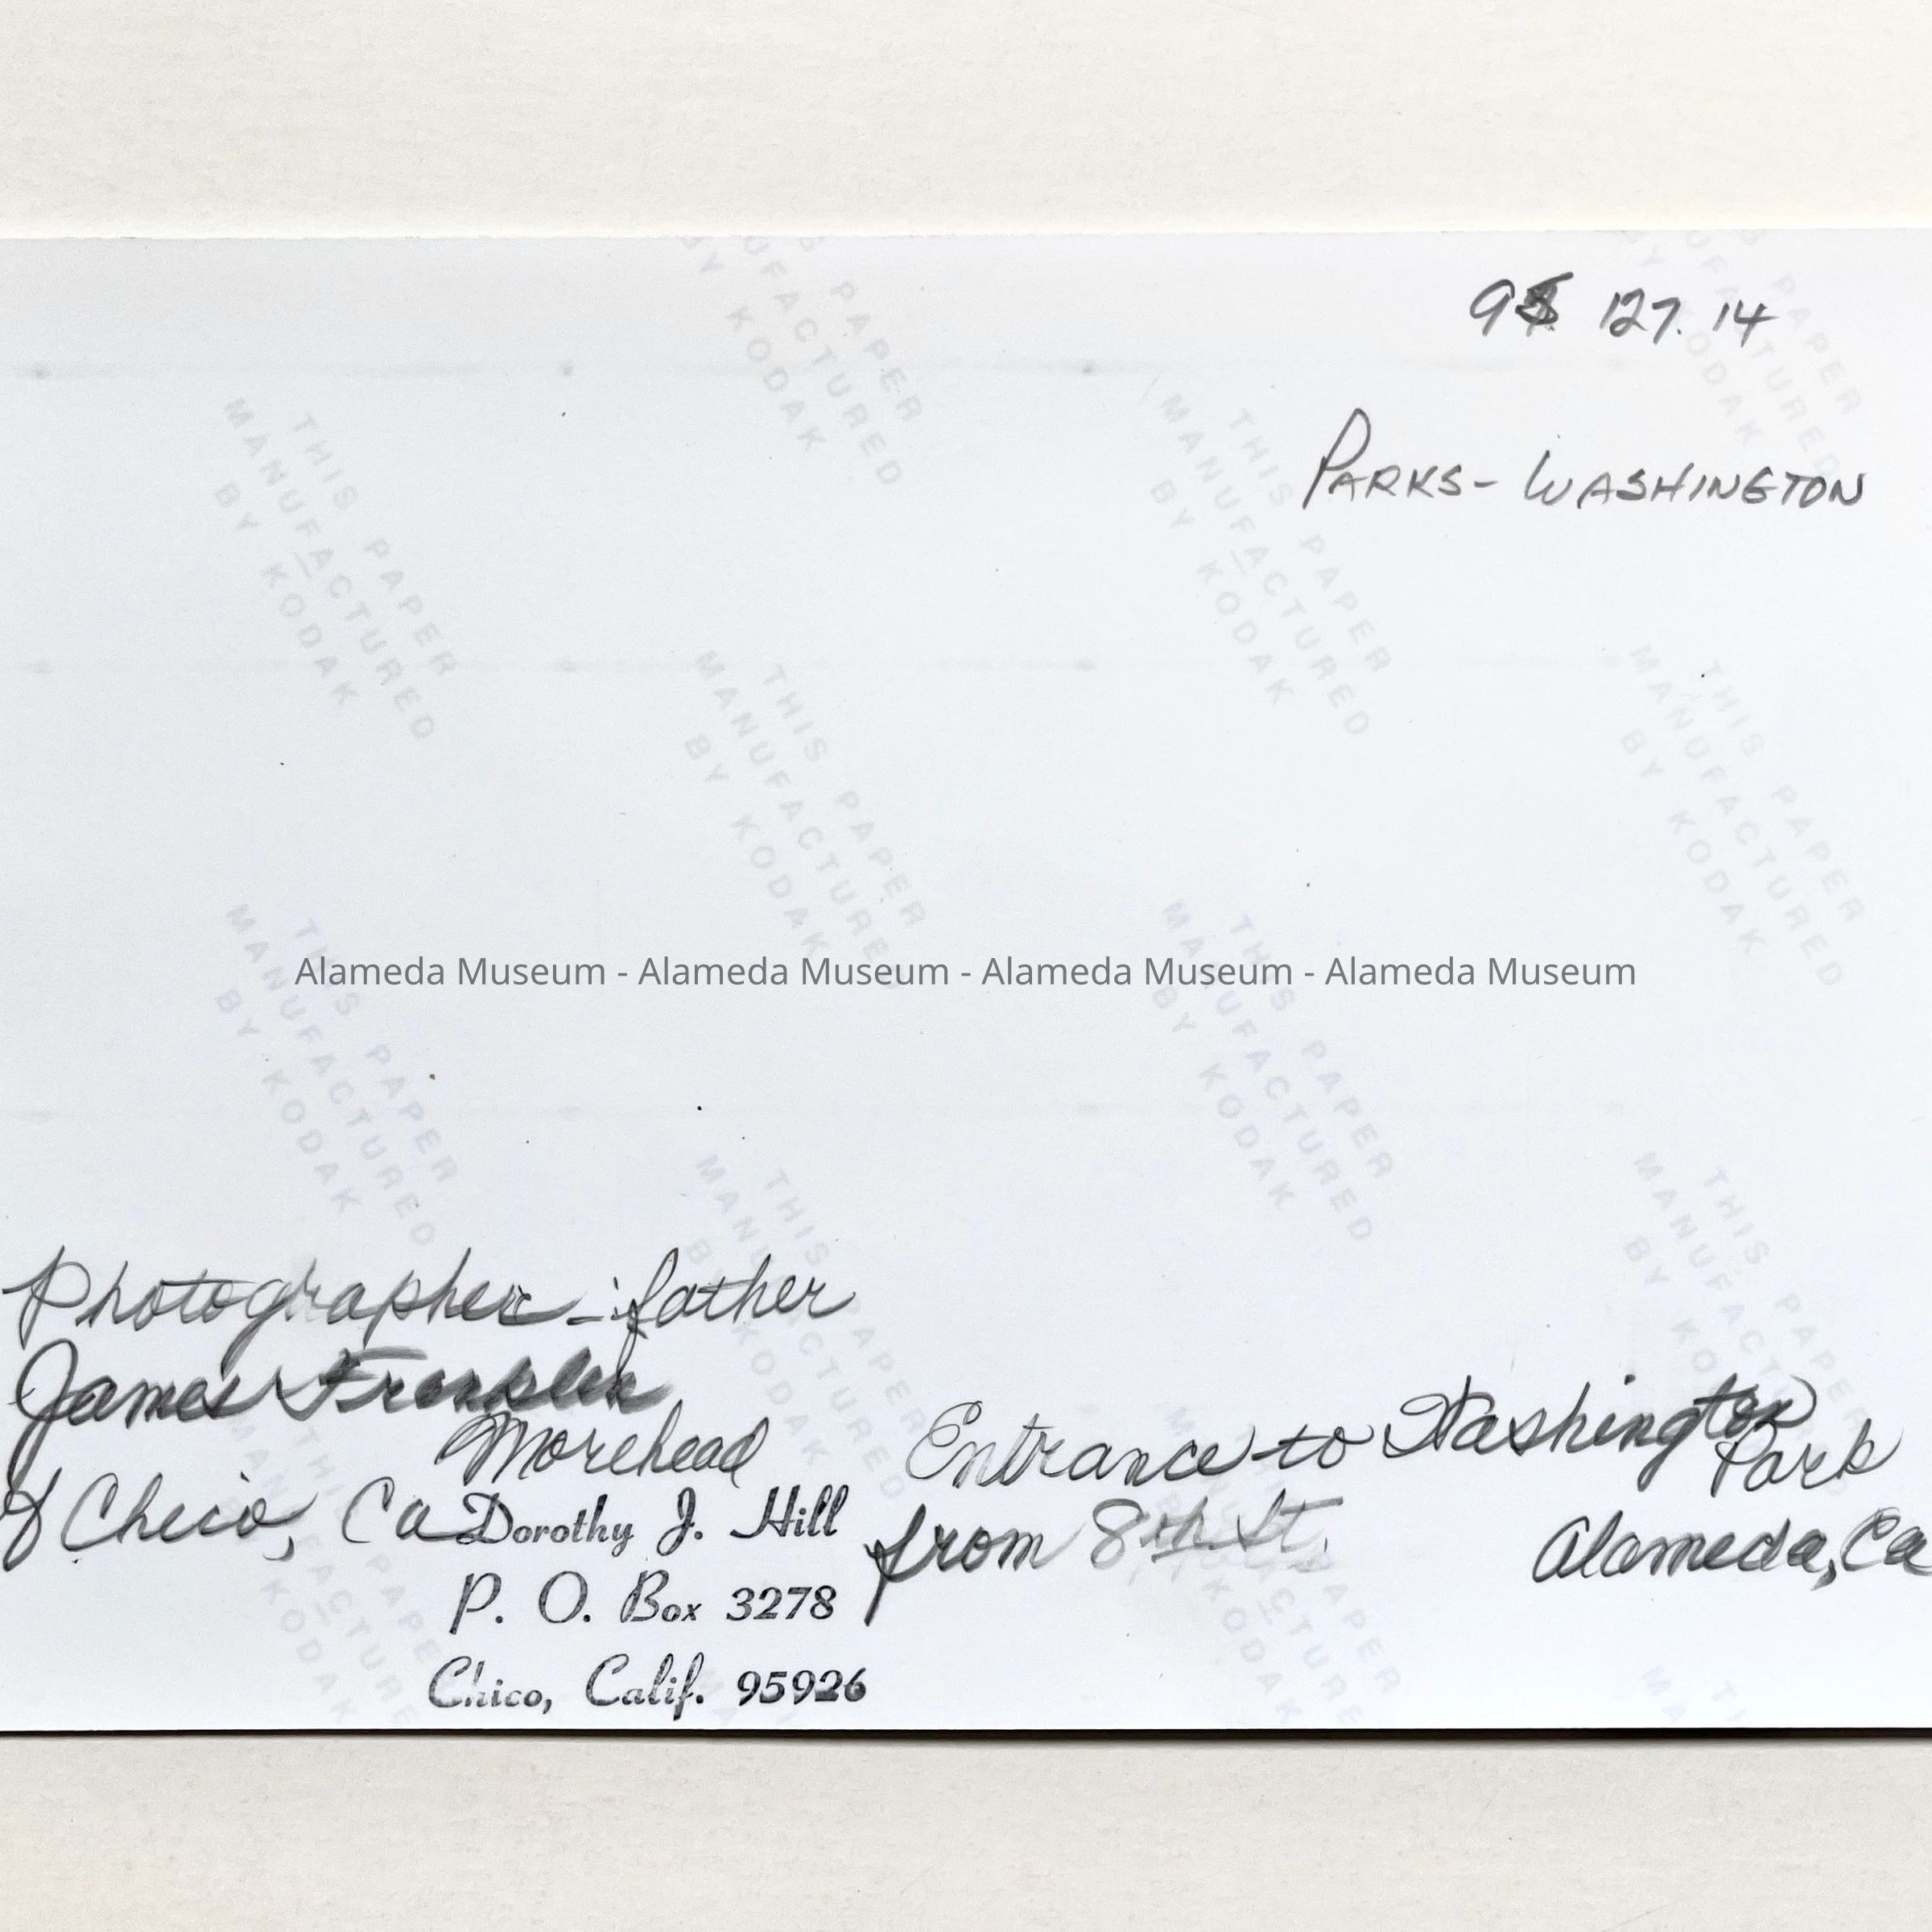 127.14
PARKS - WASHINGTON
Alameda Museum - Alameda Museum - Alameda Museum - Alameda Museum
Photographer - father
James Franklin
Morehead
of Chico, Ca
Dorothy J. Hill
P. O. Box 3278
Chico, Calif. 95926
Entrance to Washington
Park
from 8th St.
Alameda, Ca
THIS PAPER
MANUFACTURED
BY KODAK